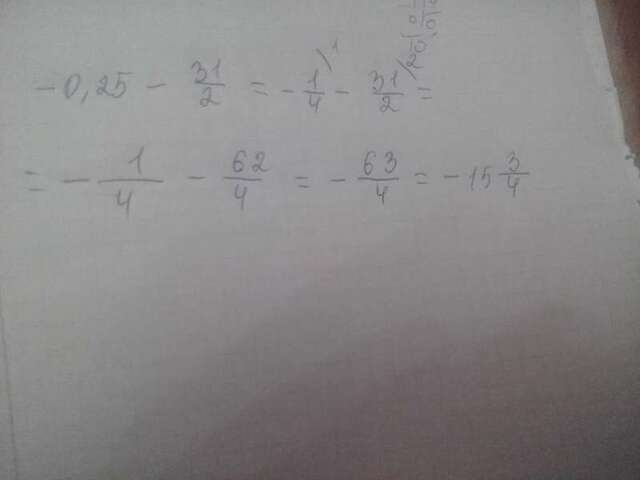 -0,25 - 31/2 = -1/4 \1 - 31/2 \2 =
= - 1/4 - 62/4 = - 63/4 = -15 3/4